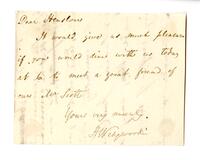 Dear Henslow
It would give us much pleasure
if you would dine with us today
at 6 to meet a great friend of
ours Mr Scott
Yours very truly
Wedgwood